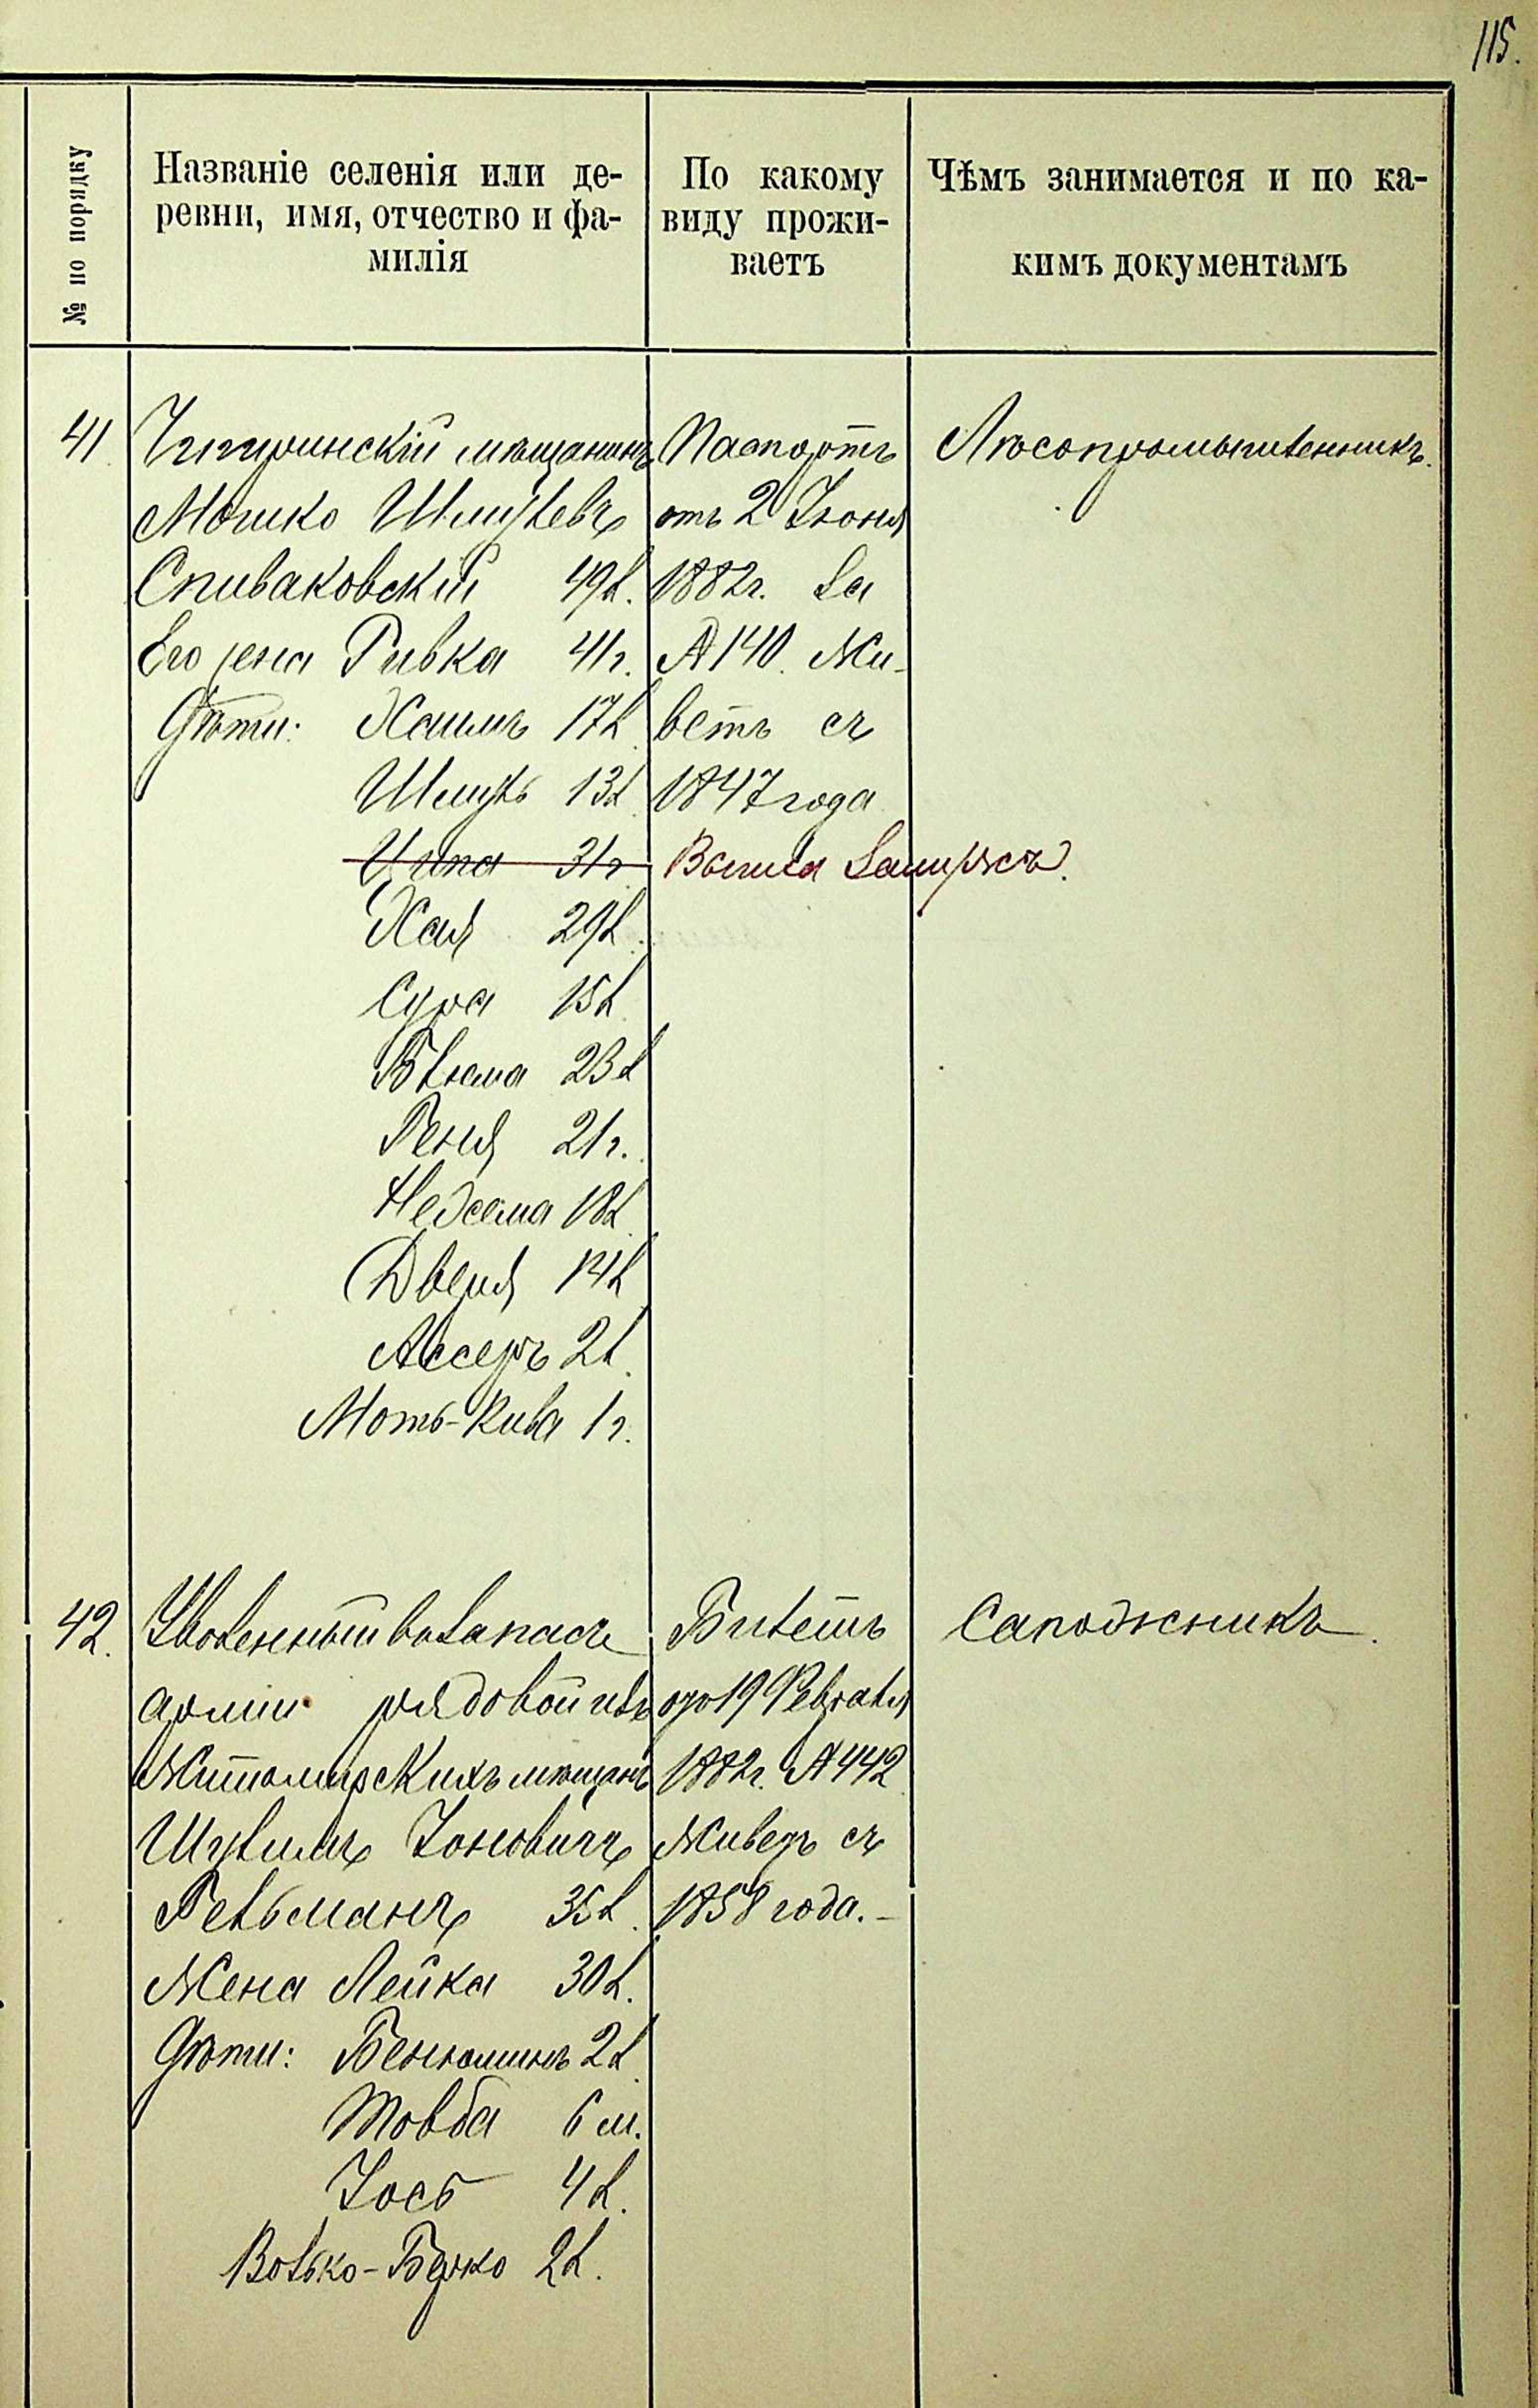 115.
№ по порядку
Названіе селенія или де-
ревни, имя, отчество и фа-
милія
По какому
виду прожи-
ваетъ
Чѣмъ занимается и по ка-
кимъ документамъ
41 Чигиринскій мѣщанинъ
Мошко Шмулевъ
Спиваковскій 49 л.
Его жена Ривка 41 г.
Дѣти: Хаимъ 17 л.
Шмуль 13 л.
Ципа 31 г.
Хая 29 л.
Сура 15 л.
Блюма 23 л
Геня 21 г.
Нехама 18 л.
Двейя 14 л
Ассеръ 2 л.
Моть-Кива 1 г.
Паспортъ
отъ 2 Іюня
1882 г. за
№ 140. Жи-
ветъ съ
1847 года
Вышла замужъ.
Лѣсопромышленникъ.
42. Уволенный въ запасъ
арміи рядовой изъ
Житомирскихъ мѣщанъ
Шулимъ Іоновичъ
Гельманъ 35 л.
Жена Лейка 30 л.
Дѣти: Бенюминъ 2 л.
Товба 6 м.
Іось 4 л.
Волько-Берко 2 л.
Билетъ
отъ 19 Февраля
1882 г. № 442
Живетъ съ
1858 года.-
Сапожникъ.